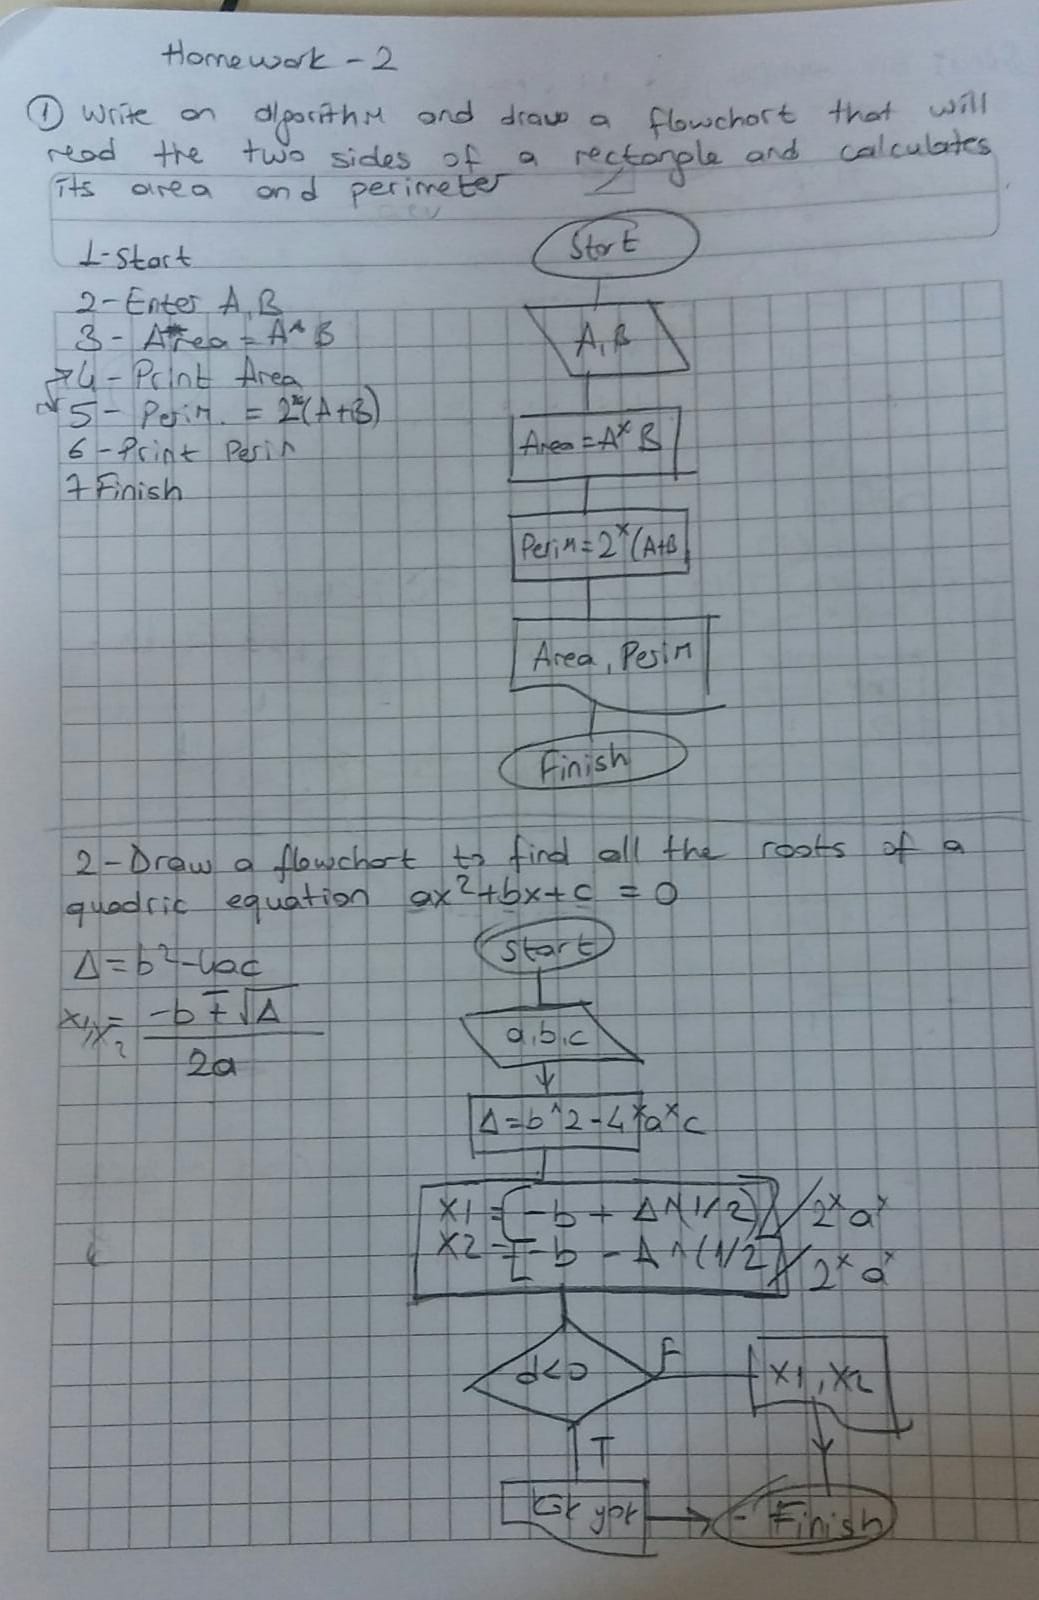 Homework - 2
① Write an algorithm and draw a flowchart that will
read the two sides of a rectangle and calculates
its area and perimeter
1-Start
2-Enter A,B
3- Area = A * B
4- Print Area
5- Perim. = 2*(A+B)
6-Print Perim
7 Finish
Start
A,B
Area = A * B
Perim = 2*(A+B
Area, Perim
Finish
2-Draw a flowchart to find all the roots of a
quadric equation ax²+bx+c = 0
Δ = b²-4ac
x₁,x₂ = -b ∓ √Δ
2a
Start
a,b,c
Δ = b^2-4*a*c
x1 = [-b + Δ^(1/2)]/2*a
x2 = [-b - Δ^(1/2)]/2*a
d<0
F
x1, x2
T
yok
Finish